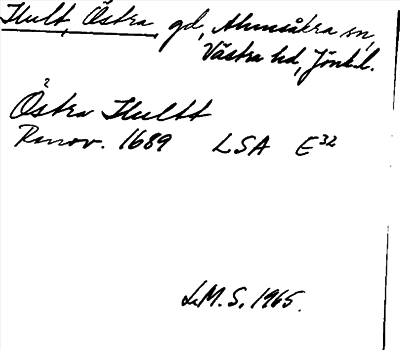 Hult, Östra, gd, Almesåkra sn,
Västra hd, Jönk.l.
Östra Hultt
Ranov. 1689 LSA E32
L.M.S. 1965.